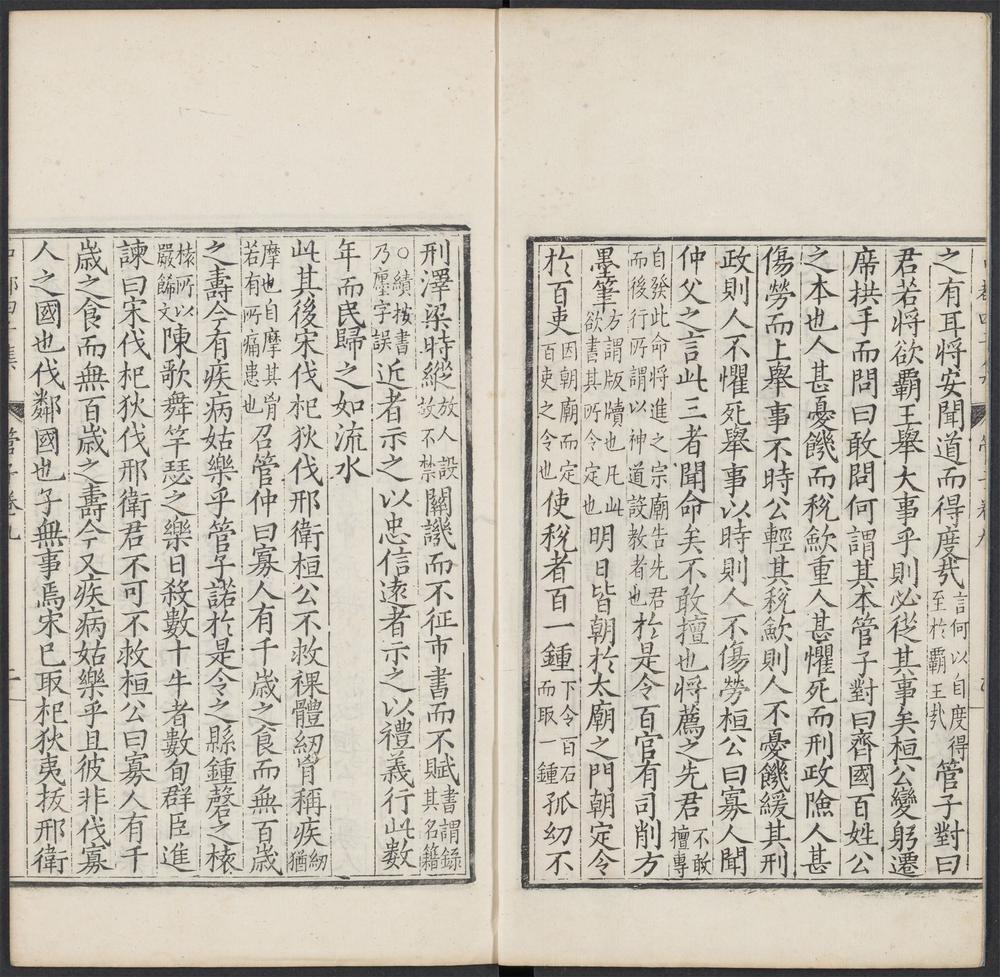 之有耳將安聞道而得度哉言何以自度得至於霸王哉管子對曰
君若將欲霸王舉大事乎則必從其事矣桓公變躬遷
席拱手而問曰敢問何謂其本管子對曰齊國百姓公
之本也人甚憂饑而稅歛重人甚懼死而刑政險人甚
傷勞而上舉事不時公輕其稅歛則人不憂饑緩其刑
政則人不懼死舉事以時則人不傷勞桓公曰寡人聞
仲父之言此三者聞命矣不敢擅也將薦之先君不敢擅專
自發此命將進之宗廟告先君而後行所謂以神道設教者也於是令百官有司削方
墨筆方謂版牘也凡此欲書其所令定也明日皆朝於太廟之門朝定令
於百吏因朝廟而定百吏之令也使稅者百一鍾下令百石而取一鍾孤幼不
刑澤梁時縱放人設放不禁關譏而不征市書而不賦書謂錄其名籍
○績按書乃廛字誤近者示之以忠信遠者示之以禮義行此數
年而民歸之如流水
此其後宋伐杞狄伐邢衛桓公不救裸體紉胷稱疾紉猶
摩也自摩其胷若有所痛患也召管仲曰寡人有千歲之食而無百歲
之壽今有疾病姑樂乎管子諾於是令之縣鍾磬之榱
榱所以嚴飾文陳歌舞竽瑟之樂日殺數十牛者數旬群臣進
諫曰宋伐杞狄伐邢衛君不可不救桓公曰寡人有千
歲之食而無百歲之壽今又疾病姑樂乎且彼非伐寡
人之國也伐鄰國也子無事焉宋已取杞狄夷拔邢衛
管子卷九